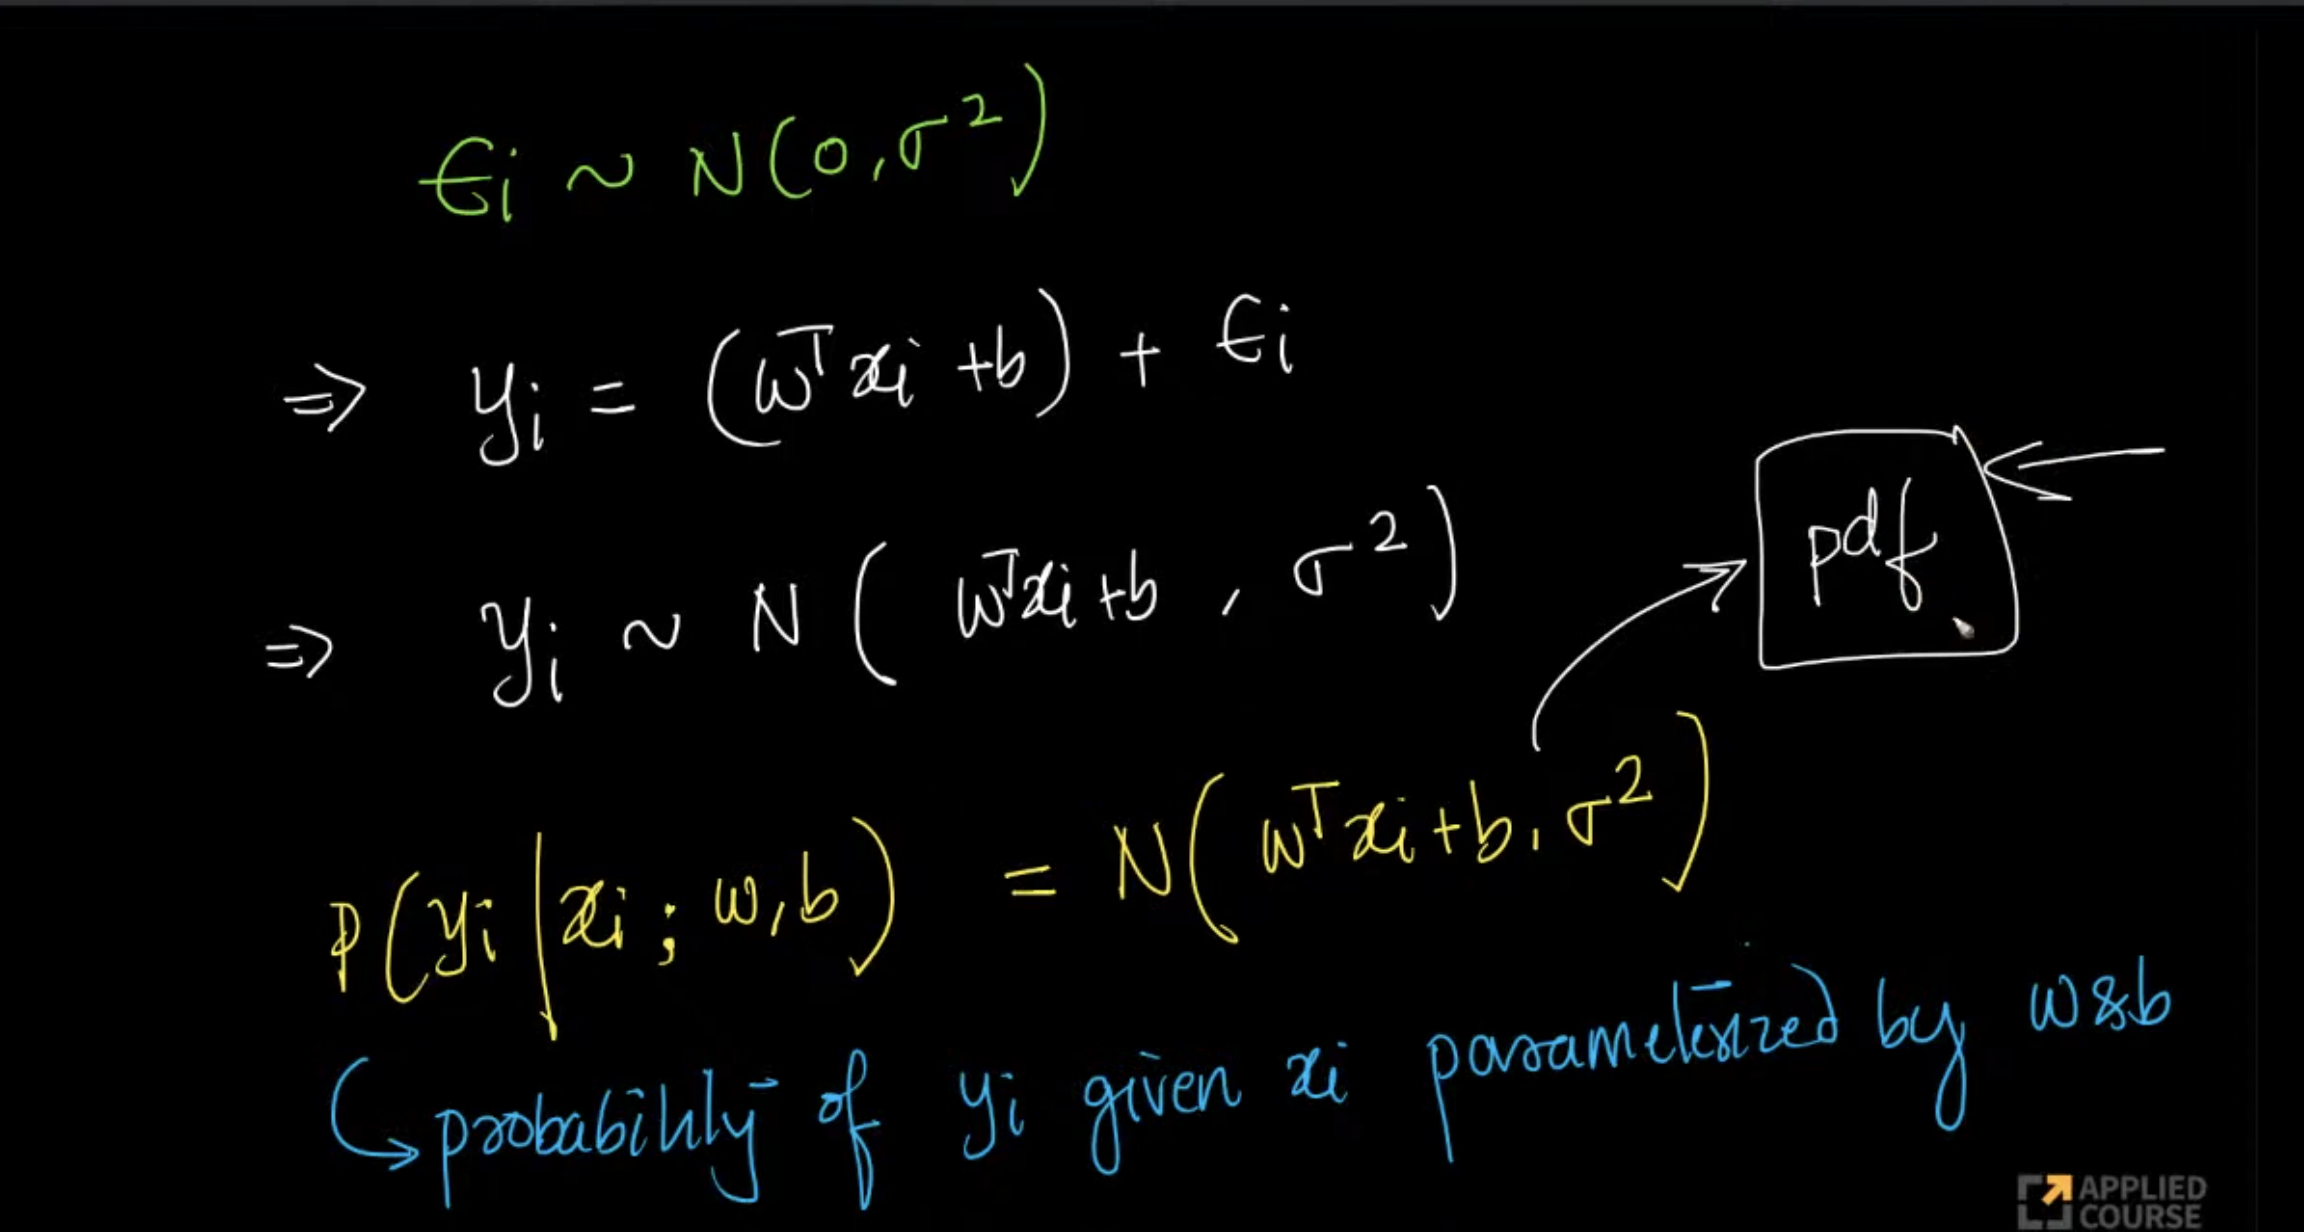 ϵi ~ N(0, σ²)
⇒ yi = (wᵀxi + b) + ϵi
pdf
⇒ yi ~ N( wᵀxi + b , σ²)
P(yi | xi ; w, b) = N( wᵀxi + b, σ²)
↪ probability of yi given xi parameterized by w & b
APPLIED
COURSE